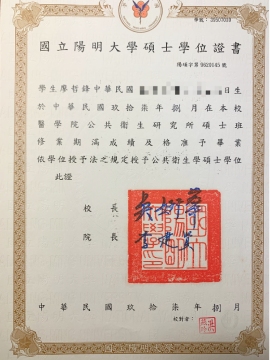 國立陽明大學碩士學位證書
陽碩字第9620145號
學生廖哲鋒中華民國 日生
於中華民國玖拾柒年捌月在本校
醫學院公共衛生研究所碩士班
修業期滿成績及格准予畢業
依學位授予法之規定授予公共衛生學碩士學位
此證
校長
院長
中華民國玖拾柒年捌月
校對者：